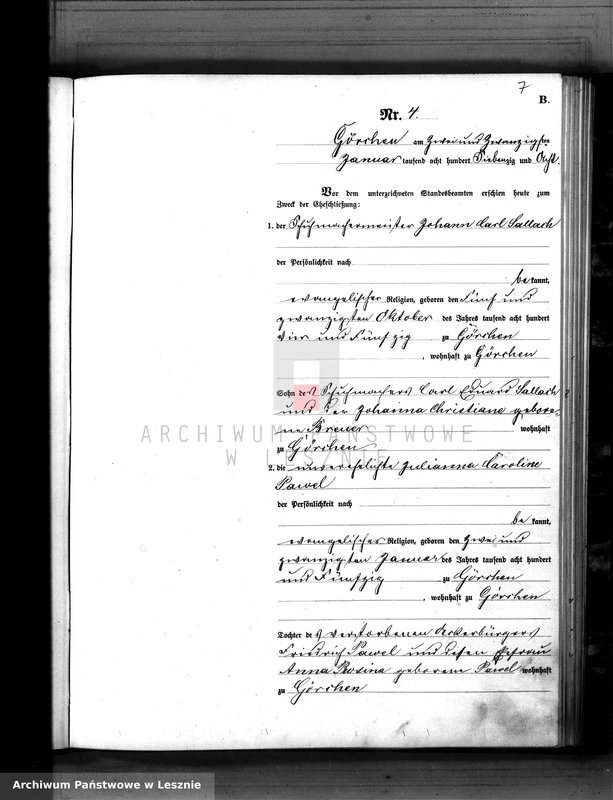 7
B.
Nr. 4.
Görchen am Zwei und Zwanzigsten
Januar tausend acht hundert Siebenzig und Acht.
Vor dem unterzeichneten Standesbeamten erschien heute zum
Zweck der Eheschließung:
1. der Schuhmachermeister Johann Carl Sallach
der Persönlichkeit nach
be kannt,
evangelischer Religion, geboren den Fünf und
zwanzigsten Oktober des Jahres tausend acht hundert
vier und Fünfzig zu Görchen
, wohnhaft zu Görchen
Sohn des Schuhmachers Carl Eduard Sallach
und der Johanna Christiane gebore-
ne Breuer wohnhaft
zu Görchen
2. die unverehelichte Julianna Caroline
Pawel
der Persönlichkeit nach
be kannt,
evangelischer Religion, geboren den Zwei und
zwanzigsten Januar des Jahres tausend acht hundert
und Fünfzig zu Görchen
, wohnhaft zu Görchen
Tochter des verstorbenen Ackerbürgers
Friedrich Pawel und dessen Ehefrau
Anna Rosina geborene Pawel wohnhaft
zu Görchen
ARCHIWUM PAŃSTWOWE
W LESZNIE
Archiwum Państwowe w Lesznie